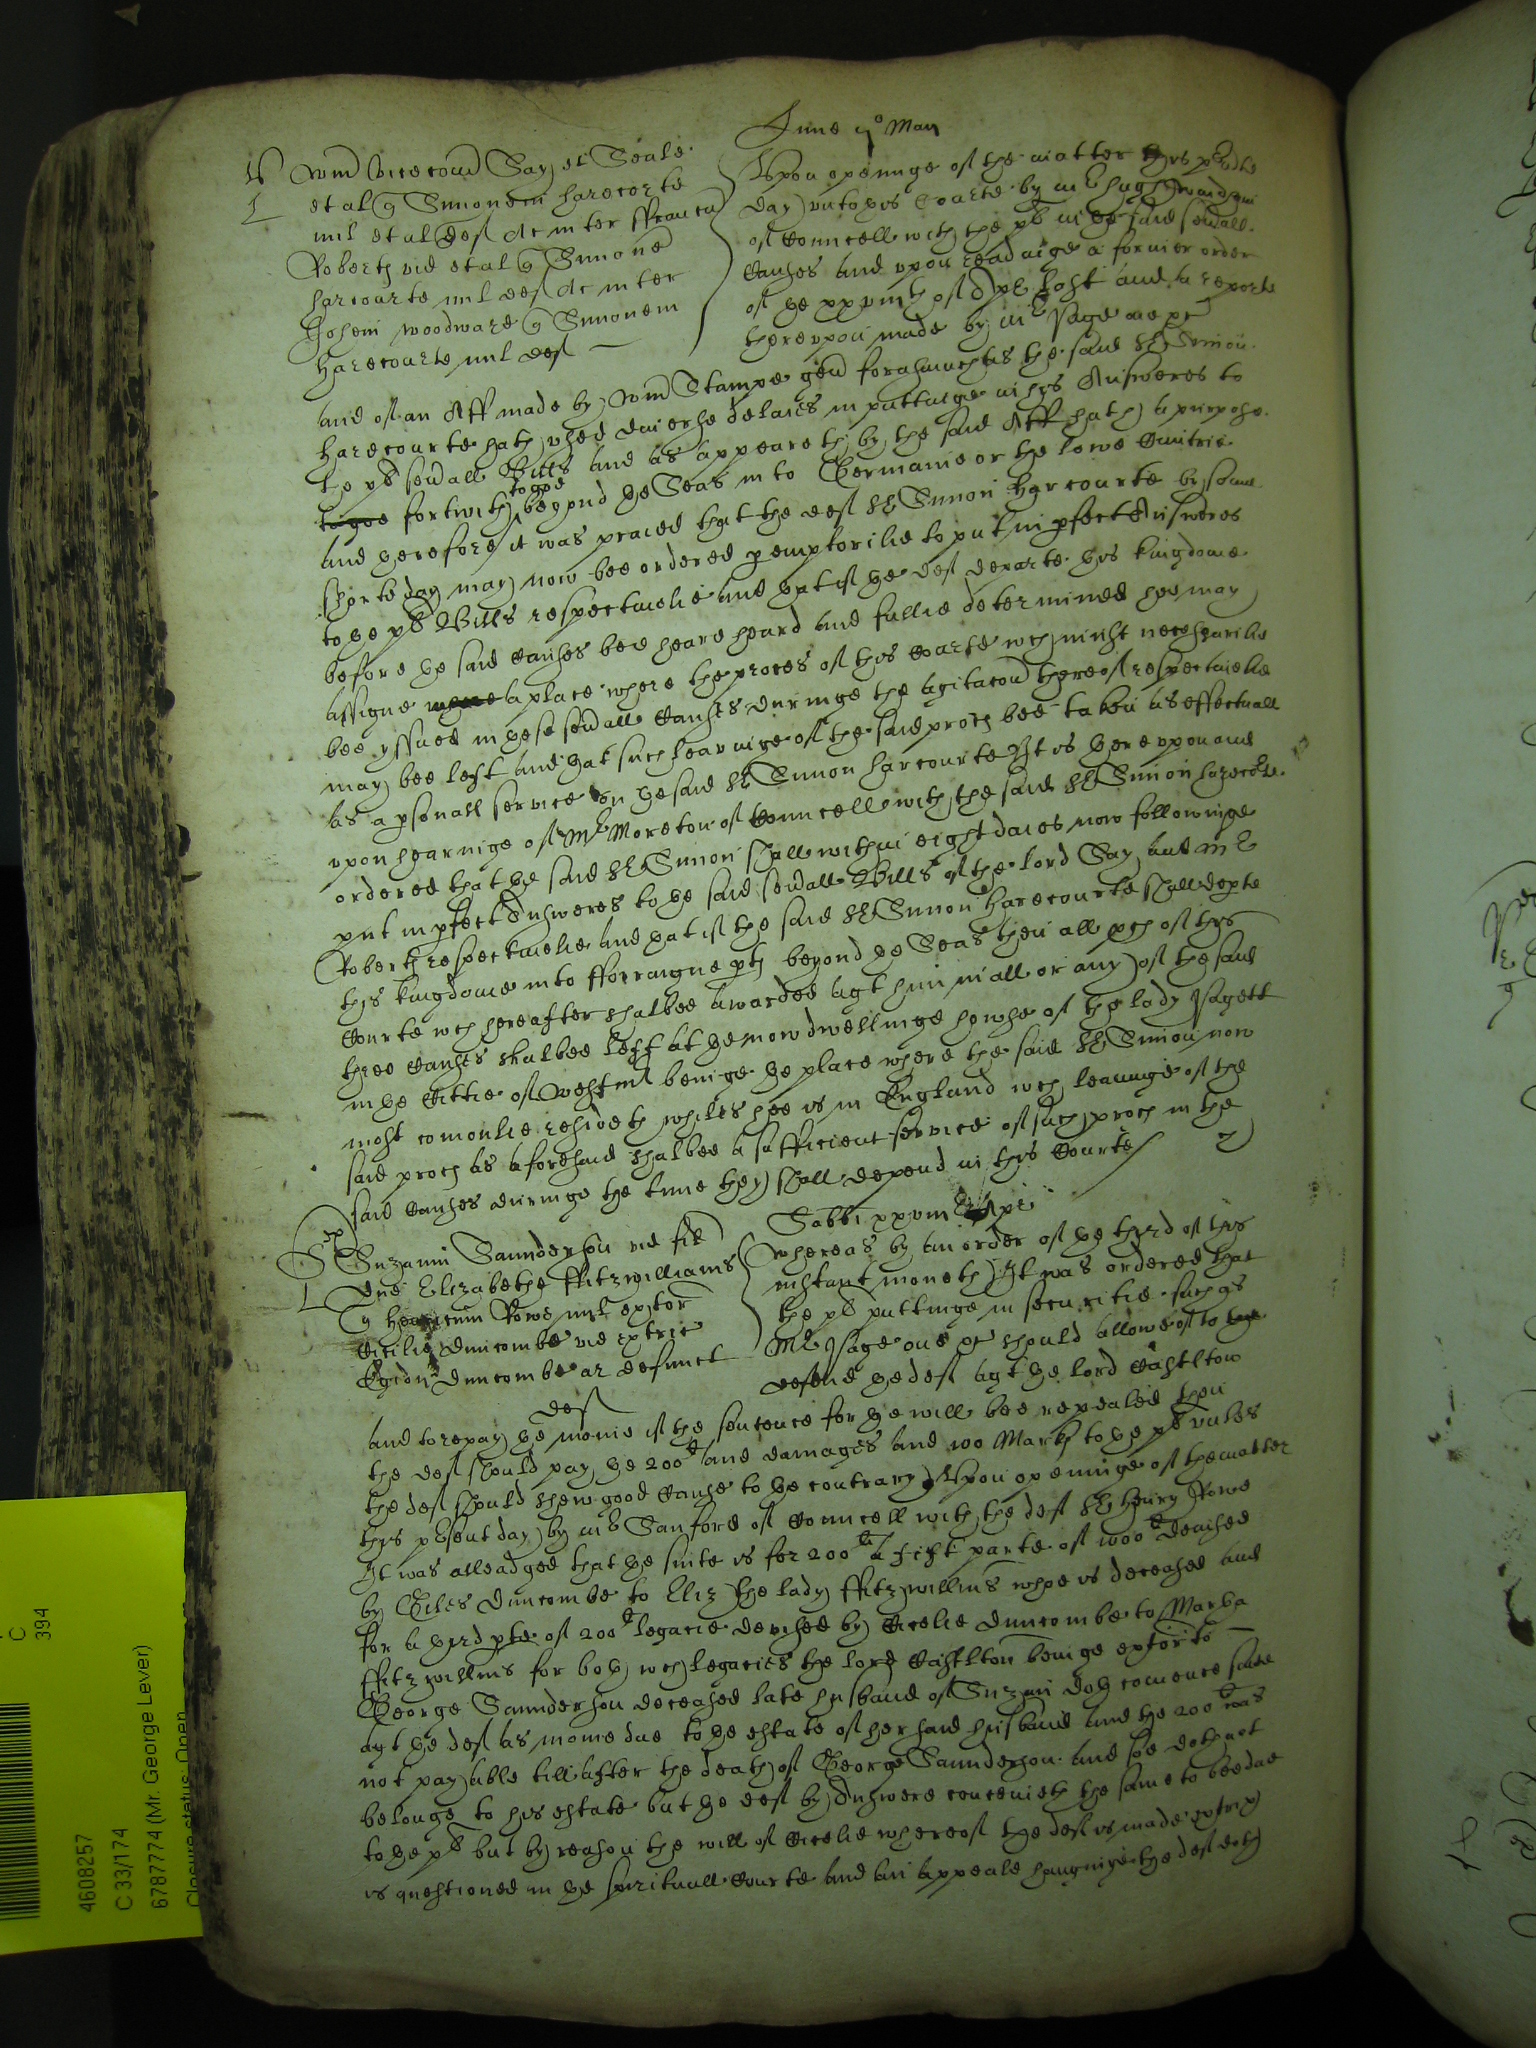 Lune ijo Maij
Willm vicecom Say et Seale
et al qr Simonem harecorte
mil et al def Ac inter ffrancu
Roberts vid et al qr Simone
harcourte mil def Ac inter
Johem woodward qr Simonem
harecourte mil def
Upon openinge of the matter this pnte
day unto this Courte by mr hugh
of Councell with the pls in the said seuall
Causes and upon readinge a former order
of the xxvith of Apr last and a reporte
thereupon made by Mr Page one &c
and of an Aff made by Wm Stampe gen forasmuch as the said Sr Simon
harecourte hath used diuerse delaies in puttinge in his Answeres to
the pls seuall Bills and as appeareth by the said Aff hath a purpose
to goe forthwith to goe beyond the Seas into Germanie or the lowe Cuntrie
and therefore it was praied that the def Sr Simon Harcourte by some
shorte day may now bee ordered peremptorilie to put in perfect Answeres
to the pls Bills respectiuelie and that if the def departe this kingdome
before the said Causes bee heard and fullie determined hee may
assigne where a place where the proces of this Courte wch might necessarilie
bee yssued in these seuall Causes duringe the agitacon thereof respectiuelie
may bee left and that such leauinge of the said proces bee taken as effectuall
as a personall service on the said Sr Simon harcourte It is thereupon and
upon hearinge of Mr Moreton of Councell with the said Sr Simon harecorte
ordered that the said Sr Simon shall within eight daies now followinge
put in perfect Answeres to the said seuall Bills of the lord Say and mr
Roberts respectiuelie and that if the said Sr Simon Harecourte shall depte
this kingdome into fforraigne pts beyond the Seas then all proces of this
Courte wch hereafter shalbee awarded agt him in all or any of the said
three Causes shalbee left at the now dwellinge howse of the lady Pagett
in the Cittie of Westmr beinge the place where the said Sr Simon now
most comonlie resideth whiles hee is in England wch leauinge of the
said proces as aforesaid shalbee a sufficient service of such proces in the
said Causes duringe the time they shall depend in this Courte
Sabbi xxviii Apr
Suzann Saunderson vid fil
dne Elizabethe ffitzwilliams
qr Henricum Rowe mil extor
Cicilie Duncombe vid extric
Egidii Duncombe ar defunct
def
whereas by an order of the third of this
instant moneth It was ordered that
the pls puttinge in securitie such as
Mr Page one &c should allowe of to
defend the def agt the lord Castleton
and to repay the monie if the sentence for the will bee repealed then
the def should pay the 200li and damages and 100 Marks to the pls unles
the def should shew good Cause to the contrary Upon openinge of the matter
this present day by mr Sanford of Councell with the def Sr Henry Rowe
It was alleadged that the suite is for 200li a fift parte of 1000li deuised
by Giles Duncombe to Eliz the lady ffitzwillms whoe is deceased and
for a third pte of 200li legacie deuised by Cicelie Duncombe to
ffitzwillms for both wch legacies the lord Castleton beinge extor to
George Saunderson deceased late husband of Suzan doth comence suite
agt the def as monie due to the estate of her said husband and the 200li was
not payable till after the death of George Saunderson and soe doth not
belonge to his estate but the def by Answere conceiueth the same to bee due
to the pls but by reason the will of Cicelie whereof the def is made extrix
is questioned in the spirituall Courte and an appeale hanginge the def doth
4608257
C 33/174
6787774 (Mr. George Lever)
Closure status: Open
C
394